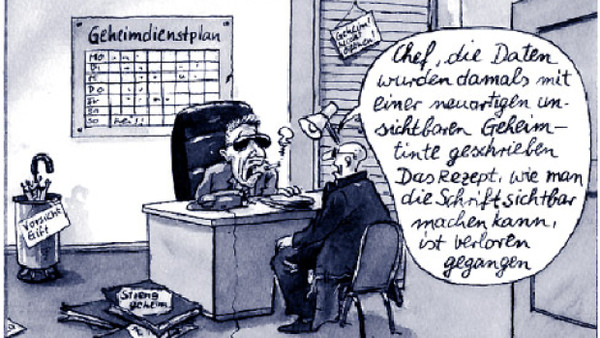 Geheimdienstplan
Mo
Di
Mi
Do
Fr
Sa
So frei!!
Geheim!
Nicht
öffnen!
Chef, die Daten
wurden damals mit
einer neuartigen un-
sichtbaren Geheim-
tinte geschrieben
Das Rezept, wie man
die Schrift sichtbar
machen kann,
ist verloren
gegangen
Vorsicht
Gift
Streng
geheim